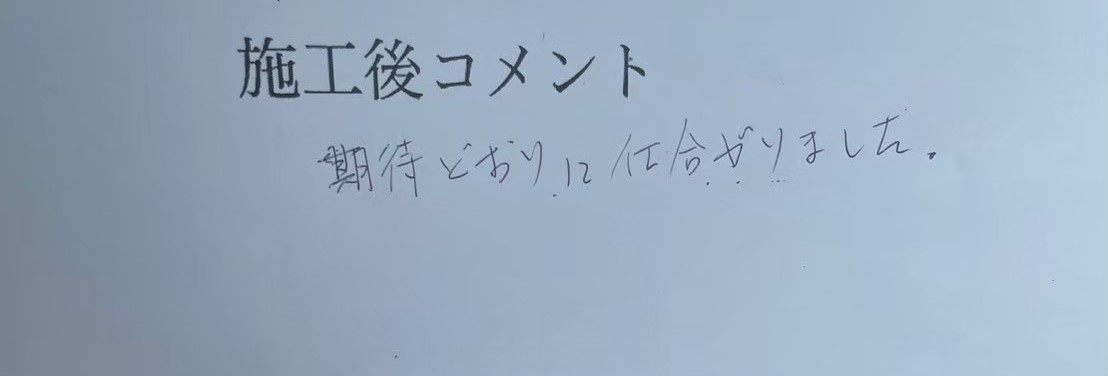 施工後コメント
期待どおりに仕合がりました。